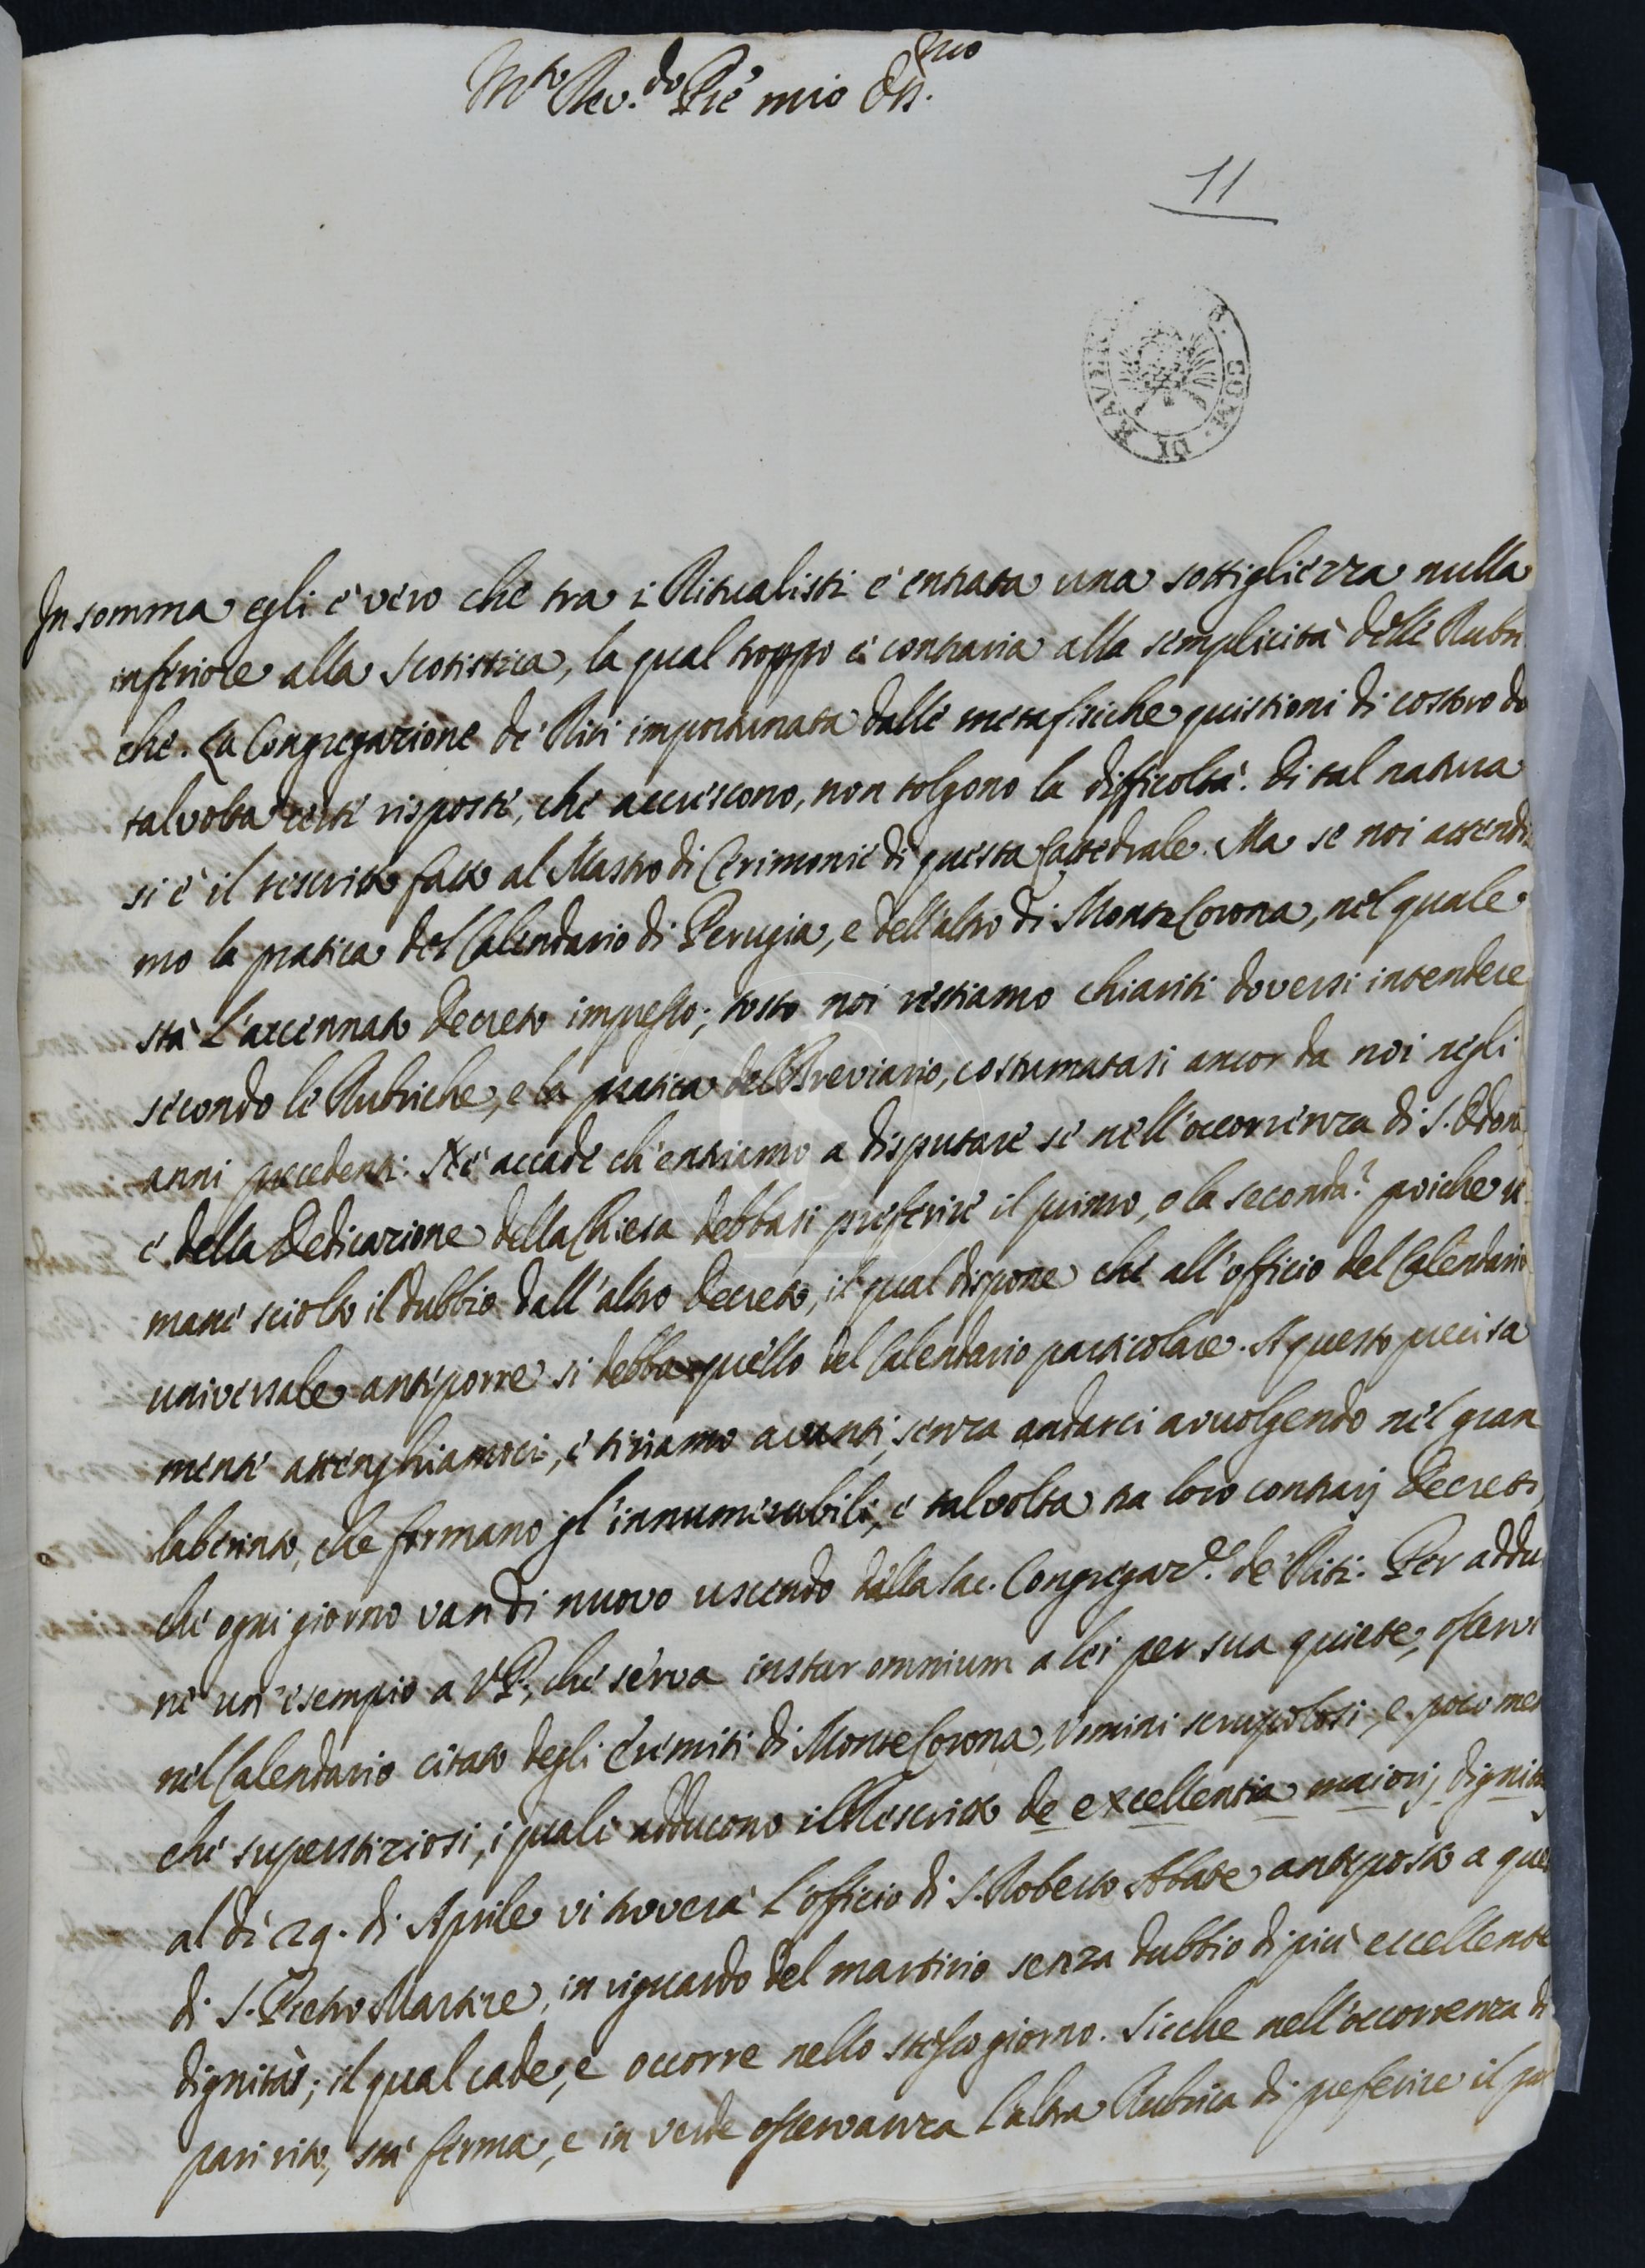 M.to Rev.do Pre mio Oss.mo
11
B. COM. DI RAVE
In somma egli è vero che tra i Ritualisti è entrata una sottigliezza nulla
inferiore alla Scotistica, la qual troppo è contraria alla semplicità delle Rubri
che. La Congregazione de' Riti importunata dalle metafisiche quistioni di costoro dà
talvolta certe risposte, che accrescono, non tolgono la difficoltà. Di tal natura
si è il rescritto fatto al Mastro di Cerimonie di questa Cattedrale. Ma se noi attendia
mo la pratica del Calendario di Perugia, e dell'altro di Monte Corona, nel quale
stà l'accennato decreto impresso; tosto noi restiamo chiariti doversi intendere
secondo le Rubriche, e la pratica del Breviario, costumatasi ancor da noi negli
anni precedenti. Nè accade ch'entriamo a disputare se nell'occorrenza di S.
e della Dedicazione della Chiesa debbasi preferire il primo, o la seconda? poiche ri
mane sciolto il dubbio dall'altro decreto, il qual dispone che all'officio del Calendario
universale anteporre si debba quello del Calendario particolare. A questo precisa
mente attenghiamoci, e tiriamo avanti, senza andarci avvolgendo nel gran
laberinto, che formano gl'innumerabili, e talvolta tra loro contrarij Decreti,
che ogni giorno van di nuovo uscendo dalla Sac. Congregaz.e de' Riti. Per addu
rre un'esempio a V.P., che serva instar omnium a lei per sua quiete, osservi
nel Calendario citato degli Eremiti di Monte Corona, Uomini scrupolosi, e poco men
che superstiziosi, i quali adducono il Rescritto de excellentia maiorj dignita
al dì 29. di Aprile vi troverà l'officio di S. Roberto Abate anteposto a quel
di S. Pietro Martire, in riguardo del martirio senza dubbio di più eccellente
dignità; il qual cade, e occorre nello stesso giorno. Sicche nell'occorrenza di
pari rito, stà ferma, e in verde osservanza l'altra Rubrica di preferire il